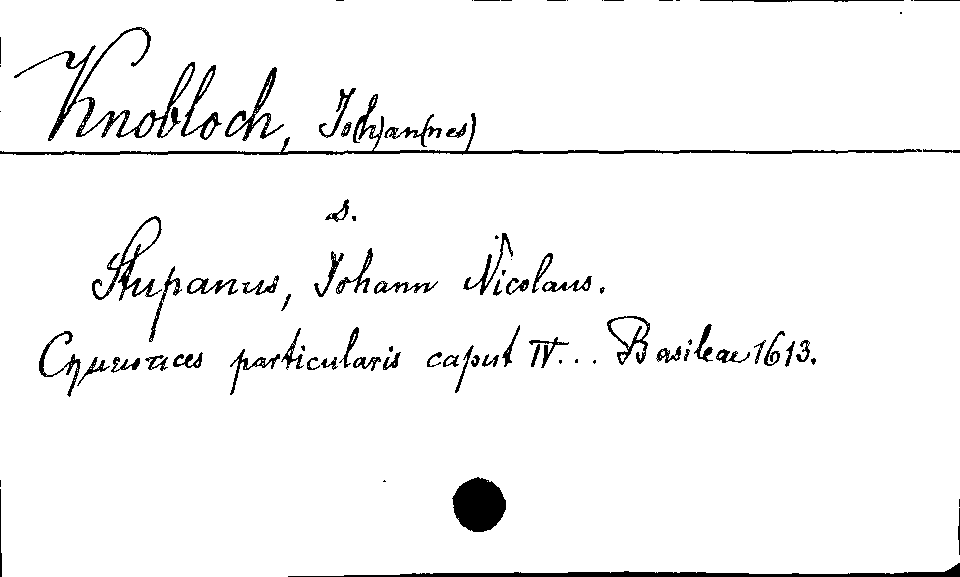 Knobloch, Jo(h)an(nes)
s.
Stupanus, Johann Nicolaus.
Cημειωτιces particularis caput IV... Basileae 1613.